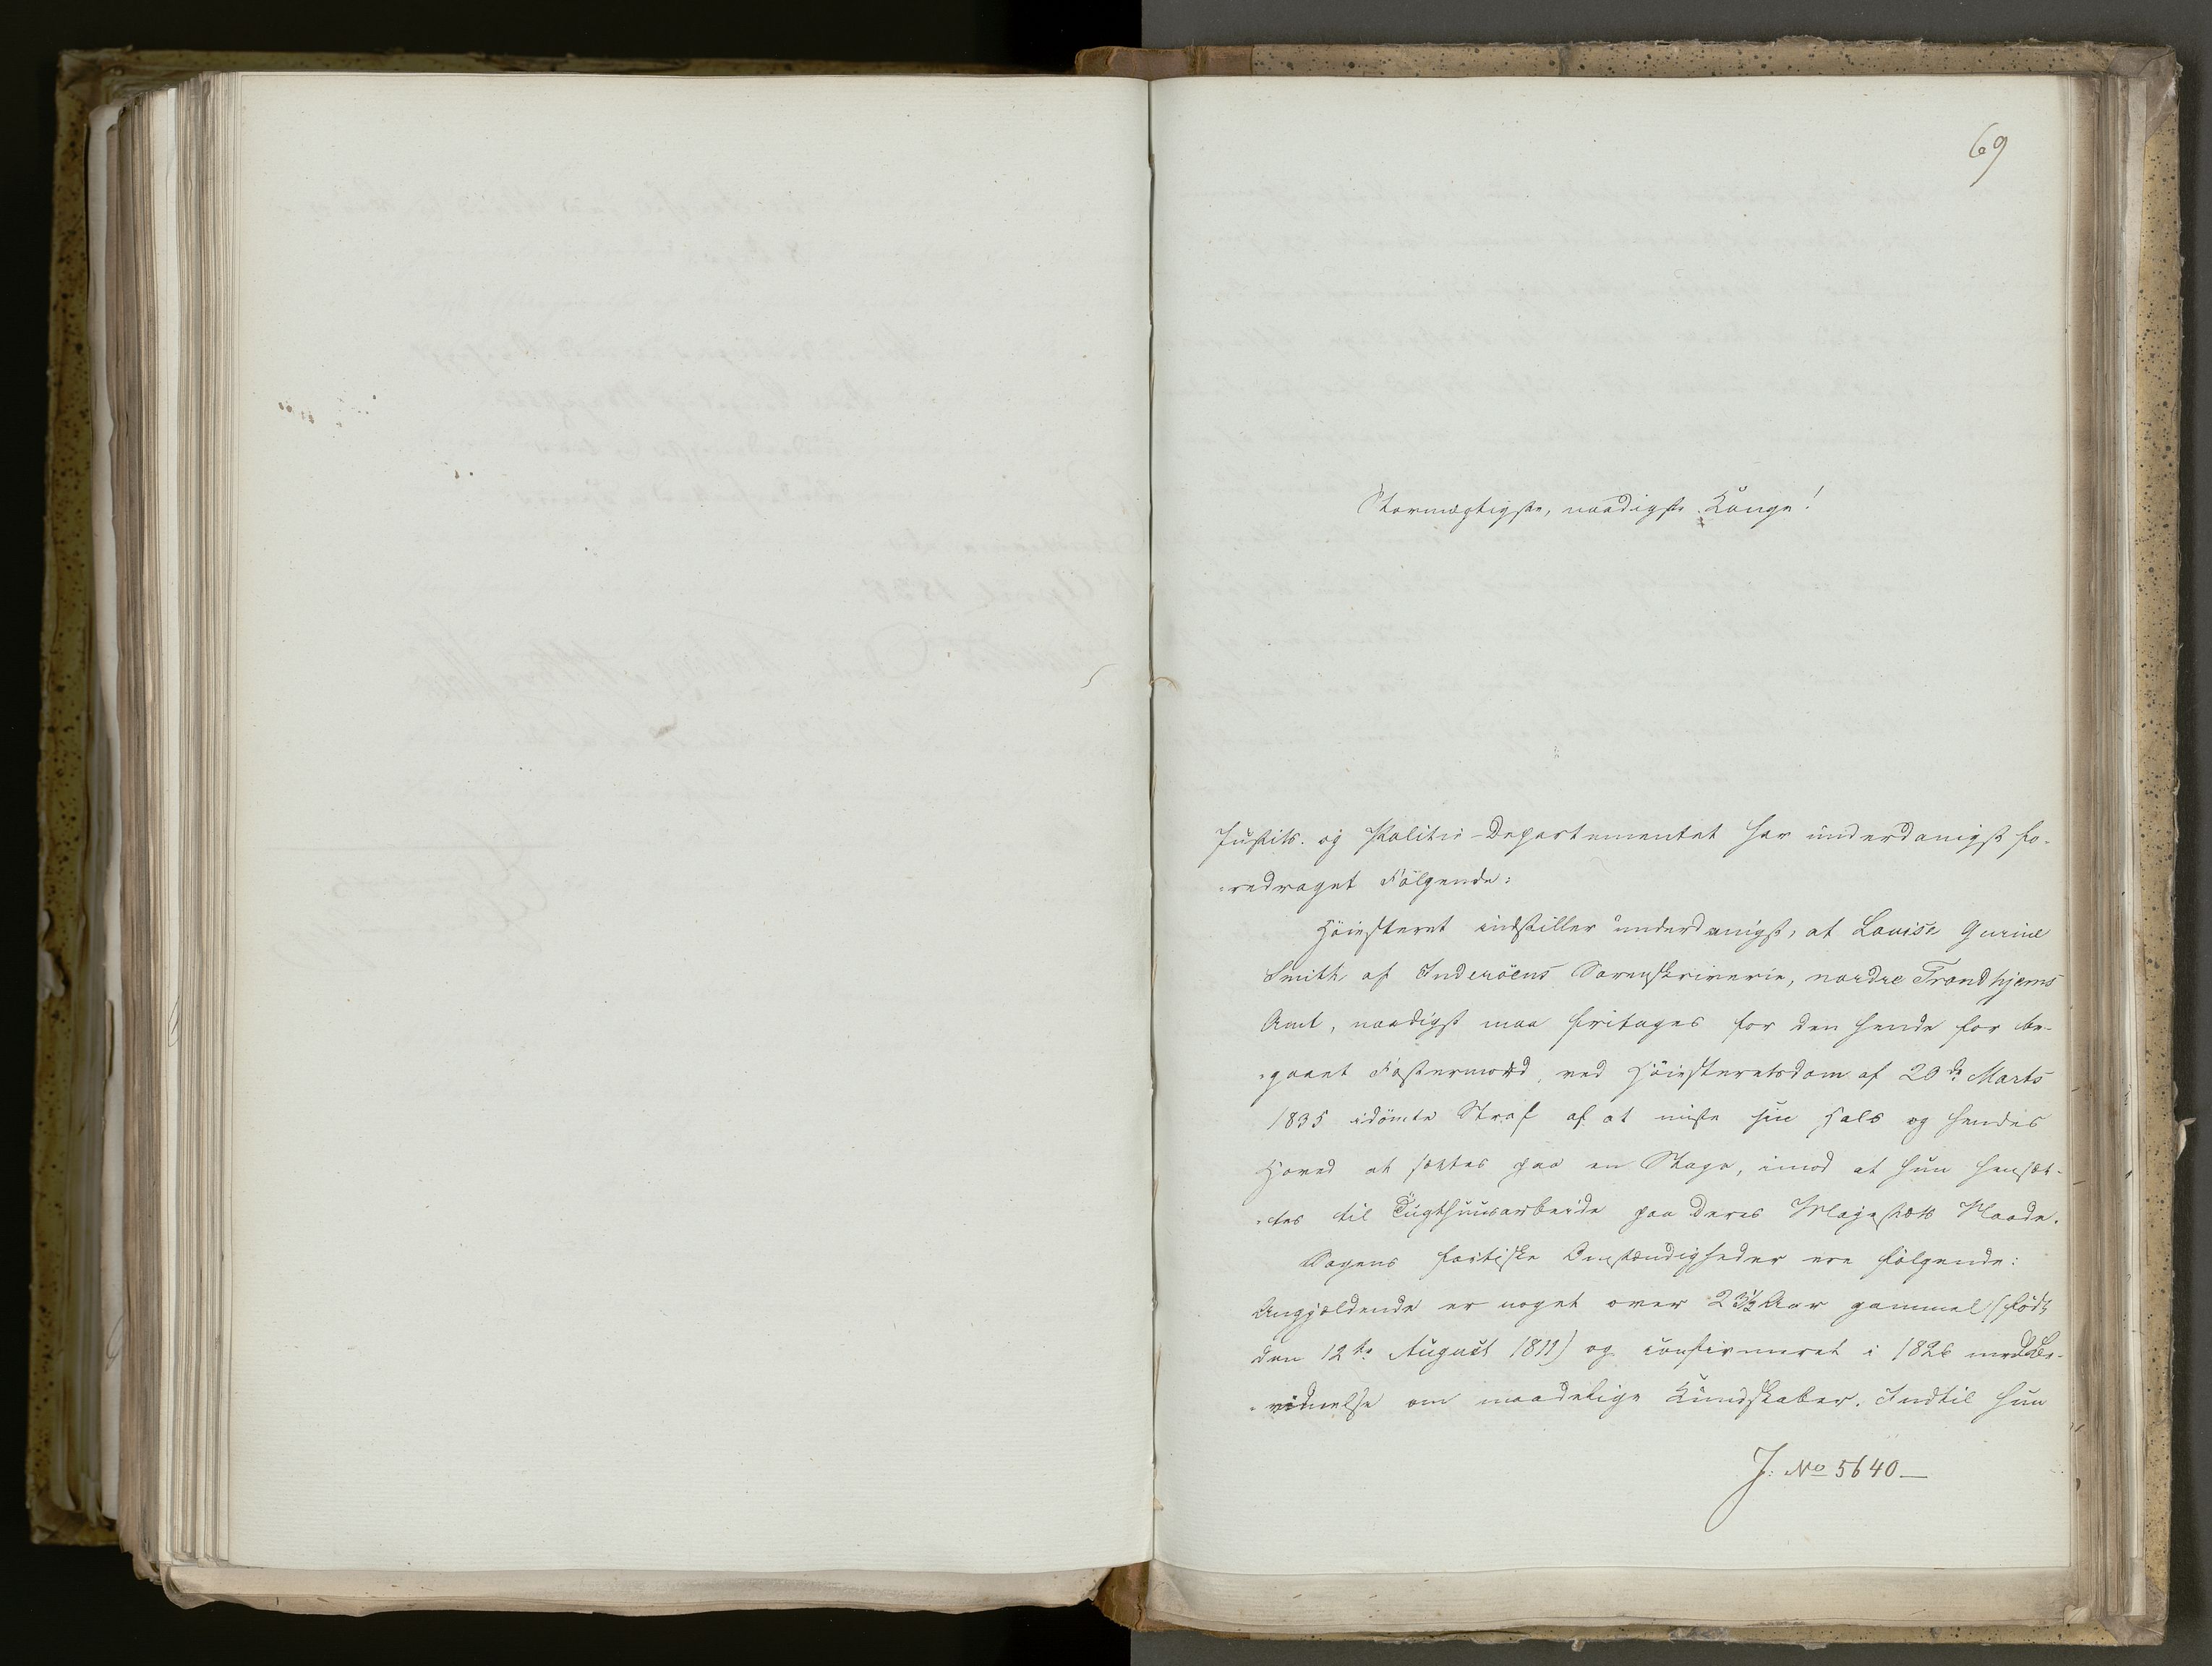 69
Stormægtigste, naadigste Konge!
Justits- og Politie-Departementet har underdanigst fo-
-redraget Følgende:
Høiesteret indstiller underdanigst, at Lovise Gurine
Smith af Inderöens Sorenskriverie, nordre Trondhjems
Amt, naadigst maa fritages for den hende for be-
-gaaet Fostermord, ved Høiesteretsdom af 20de Marts
1835 idömte Straf af at miste sin Hals og hendes
Hoved at sættes paa en Stage, imod at hun hensæt-
-tes til Tugthuusarbeide paa Deres Majestæts Naade.
Sagens factiske Omstændigheder ere følgende:
Angjældende er noget over 23½ Aar gammel (født
den 12te August 1811) og confirmeret i 1826 med Be-
-vidnelse om maadelige Kundskaber. Indtil hun
J: No 5640